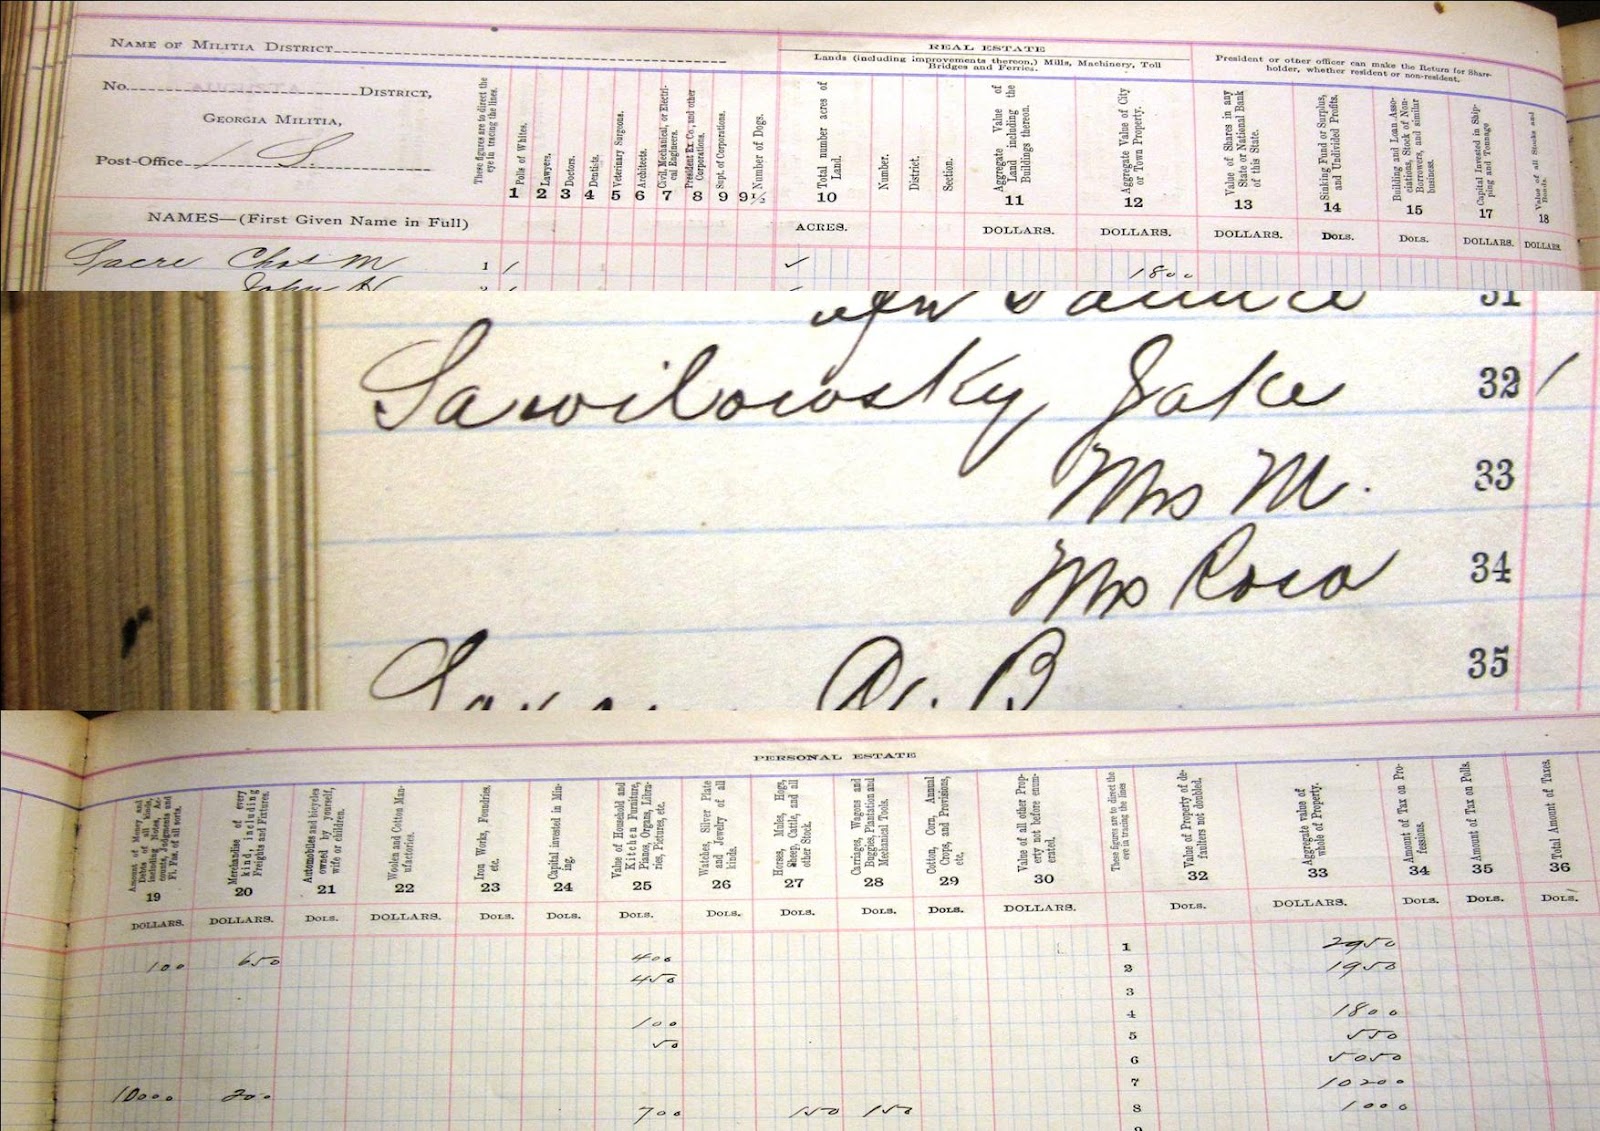 Name of Militia District
No. AUGUSTA District,
Georgia Militia,
Post-Office
NAMES—(First Given Name in Full)
These figures are to direct the eye in tracing the lines.
1 Polls of Whites.
2 Lawyers.
3 Doctors.
4 Dentists.
5 Veterinary Surgeons.
6 Architects.
7 Civil, Mechanical, or Electrical Engineers.
8 President Ex Co; and other Corporations.
9 Supt. of Corporations.
9½ Number of Dogs.
REAL ESTATE
Lands (including improvements thereon,) Mills, Machinery, Toll
Bridges and Ferries.
Total number acres of Land.
10
ACRES.
Number.
District.
Section.
Aggregate Value of Land including the Buildings thereon.
11
DOLLARS.
Aggregate Value of City or Town Property.
12
DOLLARS.
President or other officer can make the Return for Share-
holder, whether resident or non-resident.
Value of Shares in any State or National Bank of this State.
13
DOLLARS.
Sinking Fund or Surplus, and Undivided Profits.
14
Dols.
Building and Loan Associations, Stock of Non-Borrowers, and similar business.
15
Dols.
Capital Invested in Shipping and Tonnage
17
DOLLARS.
Value of all Stocks and Bonds.
18
DOLLARS.
Sacre Chas M 1 / ✓ 1800
John H
31
Sawilowsky Jake 32 /
Mrs M. 33
Mrs Rosa 34
35
PERSONAL ESTATE
Amount of Money and Debts of all kinds, including Notes, Accounts, Judgments and Fi. Fas. of all sorts.
19
DOLLARS.
Merchandise of every kind, including Freights and Fixtures.
20
DOLLARS.
Automobiles and bicycles owned by yourself, wife or children.
21
Dols.
Woolen and Cotton Manufactories.
22
DOLLARS.
Iron Works, Foundries, etc.
23
Dols.
Capital invested in Mining.
24
Dols.
Value of Household and Kitchen Furniture, Pianos, Organs, Libraries, Pictures, etc.
25
Dols.
Watches, Silver Plate and Jewelry of all kinds.
26
Dols.
Horses, Mules, Hogs, Sheep, Cattle, and all other Stock.
27
Dols.
Carriages, Wagons and Buggies, Plantation and Mechanical Tools.
28
Dols.
Cotton, Corn, Annual Crops, and Provisions, etc,
29
Dols.
Value of all other Property not before enumerated.
30
DOLLARS.
These figures are to direct the eye in tracing the lines
Value of Property of defaulters not doubled.
32
Dols.
Aggregate value of whole of Property.
33
DOLLARS.
Amount of Tax on Professions.
34
Dols.
Amount of Tax on Polls.
35
Dols.
Total Amount of Taxes.
36
Dols.
100 650 400 1 2950
450 2 1950
3
100 4 1800
50 5 550
6 5050
10000 200 7 10200
700 150 150 8 1000
9